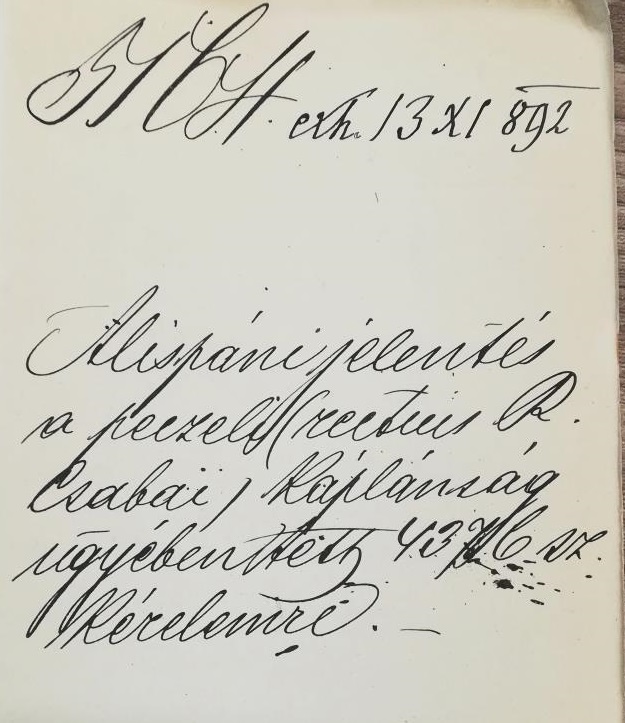 erk. 13 XI 892
Alispáni jelentés
a peczeli (rectius R.
Csabai) Káplánság
ügyében tett sz.
kérelemre. —